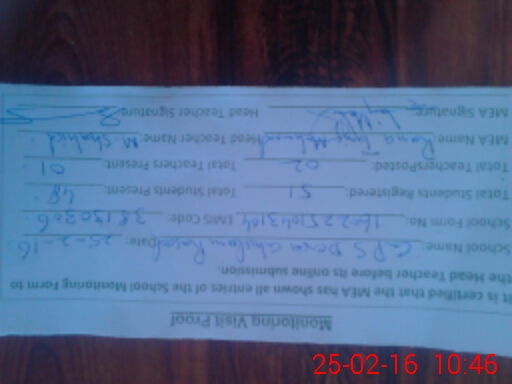 Monitoring Visit Proof
It is certified that the MEA has shown all entries of the School Monitoring Form to
the Head Teacher before its online submission.
School Name: G.P.S Dera Ghulam Rasool Date: 25-2-16
School Form No: EMIS Code: 38130306
Total Students Registered: 51 Total Students Present: 48
Total TeachersPosted: 02 Total Teachers Present: 01
MEA Name: Rana Head Teacher Name: M. Shahid
MEA Signature: Head Teacher Signature:
25-02-16 10:46